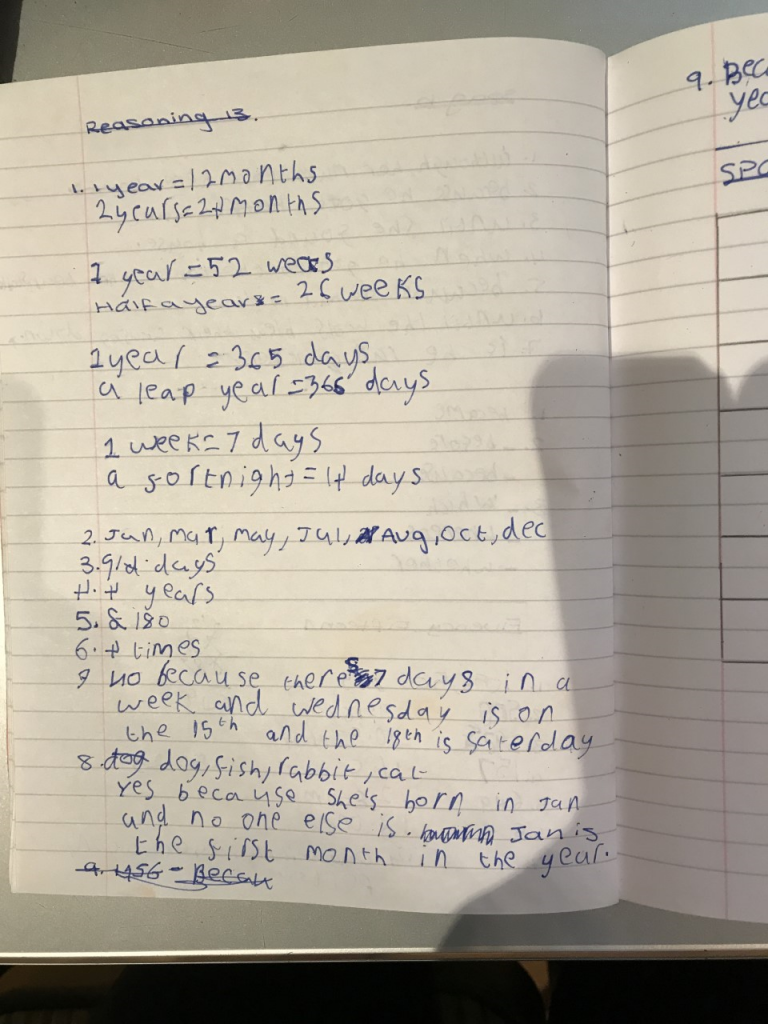 Reasoning 13.
1. 1 year = 12 months
2 years = 24 months
1 year = 52 weeks
Half a years = 26 weeks
1 year = 365 days
a leap year = 366 days
1 week = 7 days
a fortnight = 14 days
2. Jan, mar, may, Jul, Aug, oct, dec
3. 91d days
4. 4 years
5. 180
6. 4 times
no because there's 7 days in a
week and wednesday is on
the 15th and the 18th is saterday
8. dog dog, fish, rabbit, cat
Yes because she's born in Jan
and no one else is. Jan is
the first month in the year.
9. 1456 - Becau
9. Bec
yea
SPO